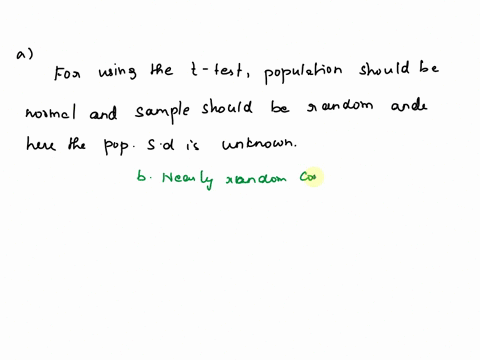 a)
For using the t-test, population should be
normal and sample should be random ande
here the pop. S.d is unknown.
b. Nearly random Co